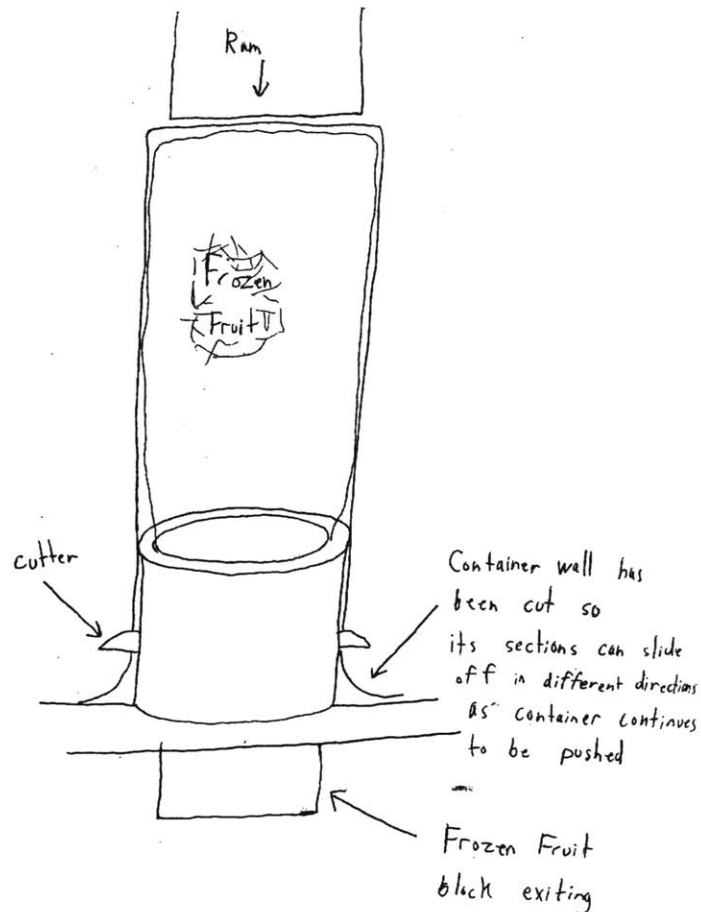 Ram
Frozen
Fruit
cutter
Container wall has
been cut so
its sections can slide
off in different directions
as container continues
to be pushed
Frozen Fruit
block exiting